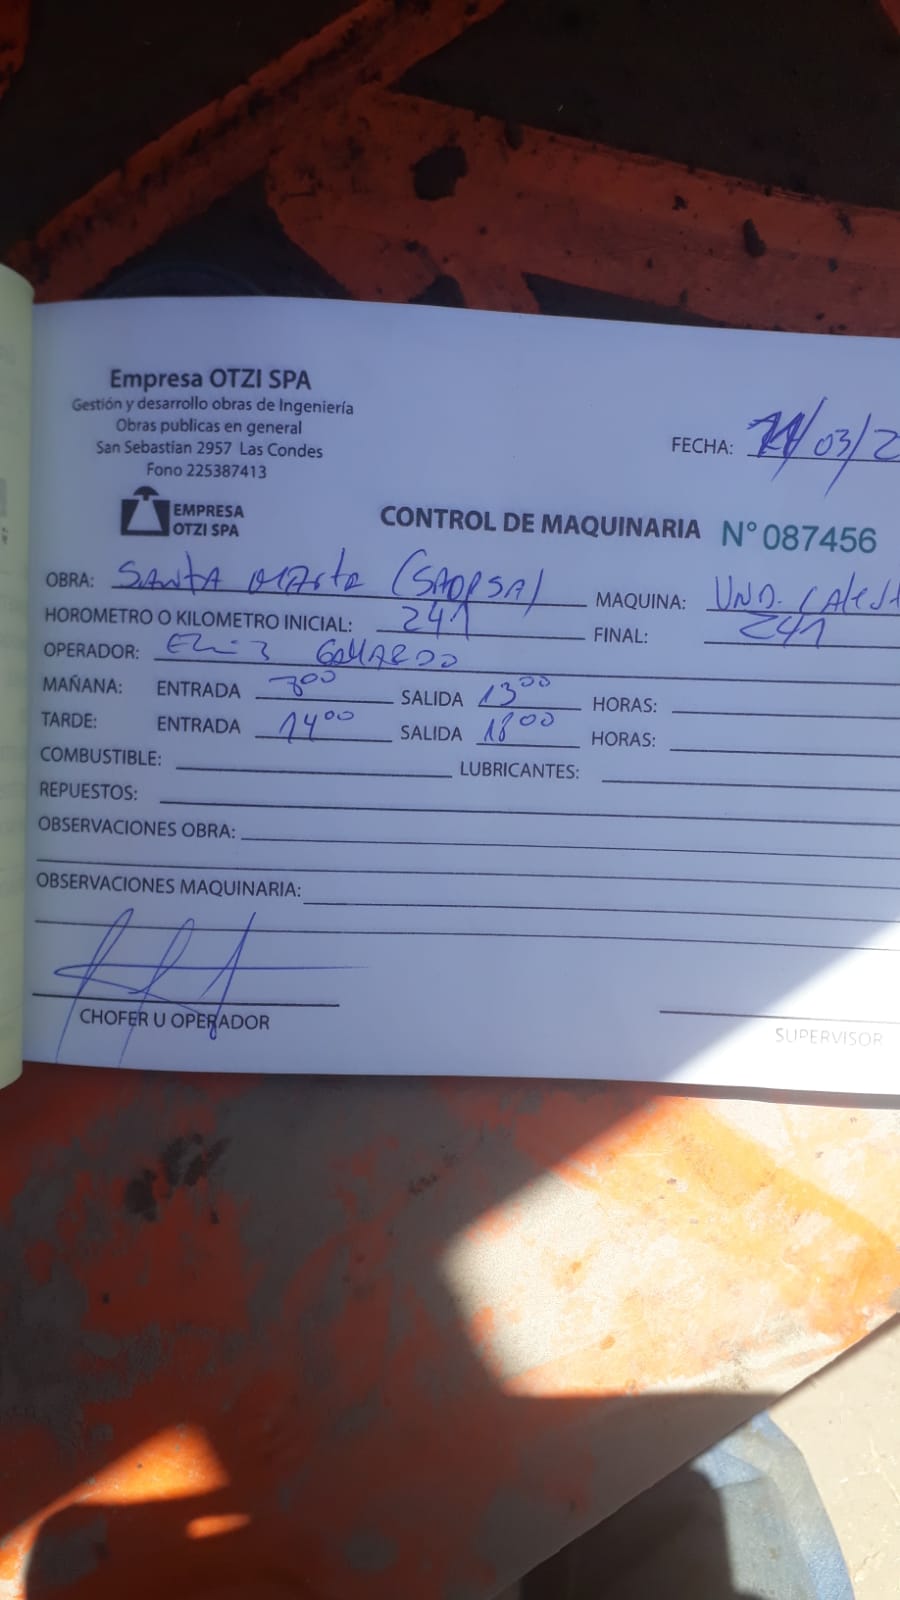 Empresa OTZI SPA
Gestión y desarrollo obras de Ingeniería
Obras publicas en general
San Sebastian 2957 Las Condes
Fono 225387413
EMPRESA
OTZI SPA
FECHA: /03/2
CONTROL DE MAQUINARIA N° 087456
OBRA: SANTA MARTA
MAQUINA: UND.
HOROMETRO O KILOMETRO INICIAL: 241
FINAL: 241
OPERADOR: GALLARDO
MAÑANA: ENTRADA 8:00 SALIDA 13:00 HORAS:
TARDE: ENTRADA 14:00 SALIDA 18:00 HORAS:
COMBUSTIBLE: LUBRICANTES:
REPUESTOS:
OBSERVACIONES OBRA:
OBSERVACIONES MAQUINARIA:
CHOFER U OPERADOR
SUPERVISOR